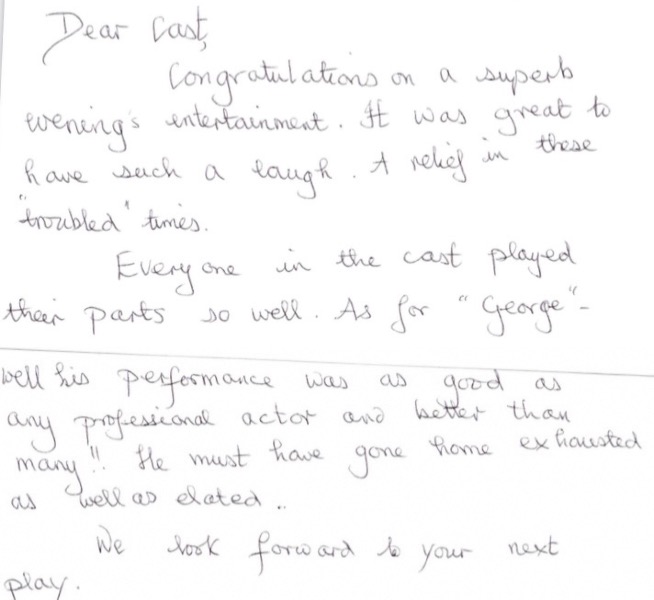 Dear Cast,
Congratulations on a superb
evening's entertainment. It was great to
have such a laugh. A relief in these
"troubled" times.
Every one in the cast played
their parts so well. As for "George"-
well his performance was as good as
any professional actor and better than
many!! He must have gone home exhausted
as well as elated..
We look forward to your next
play.